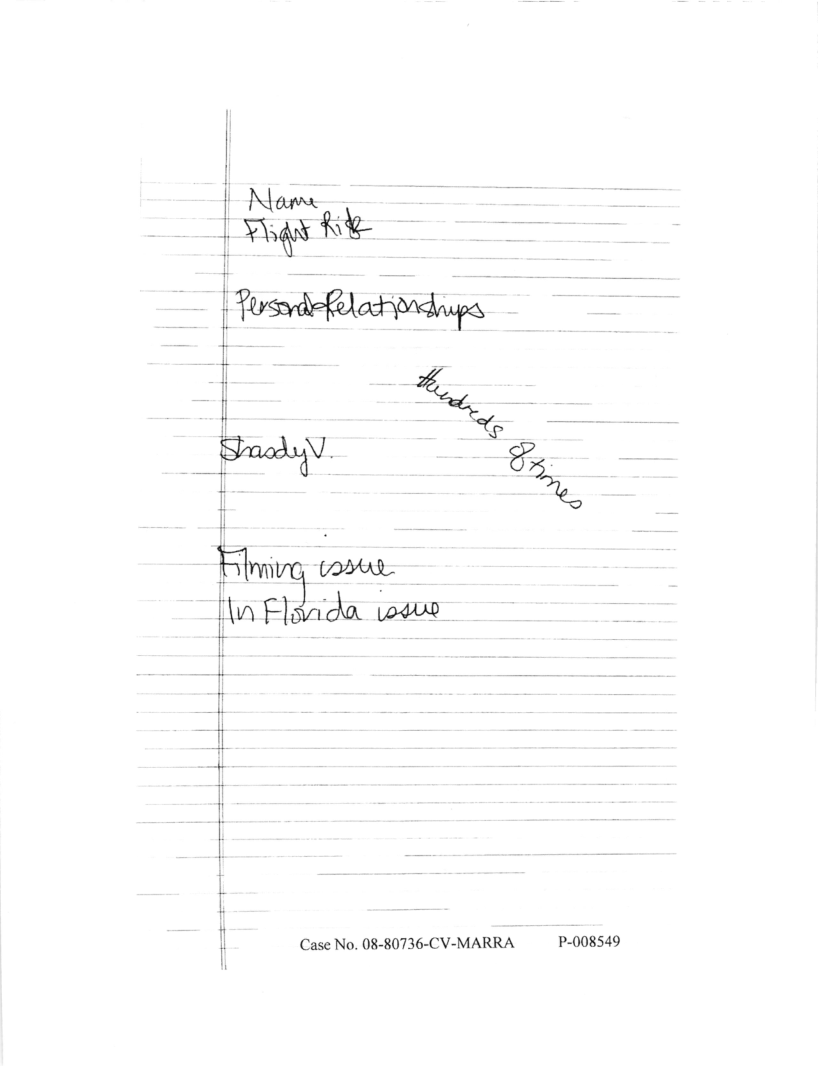 Name
Flight Risk
Personal Relationships
Hundreds of times
V.
Filming issue
In Florida issue
Case No. 08-80736-CV-MARRA P-008549